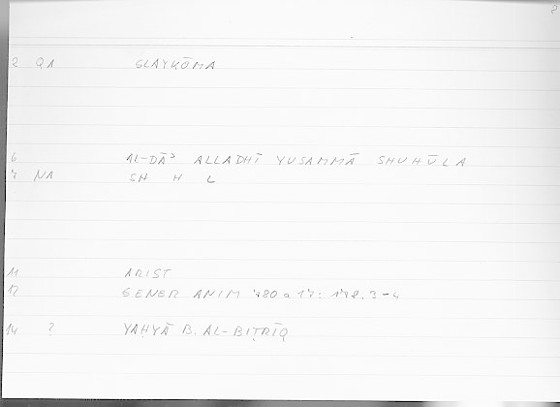 2
2 QA GLAYKŌMA
6 AL-DĀʾ ALLADHĪ YUSAMMĀ SHUHŪLA
7 NA SH H L
11 ARIST
12 GENER ANIM 780 a 17: 178.3-4
14 ? YAḤYĀ B. AL-BIṬRĪQ